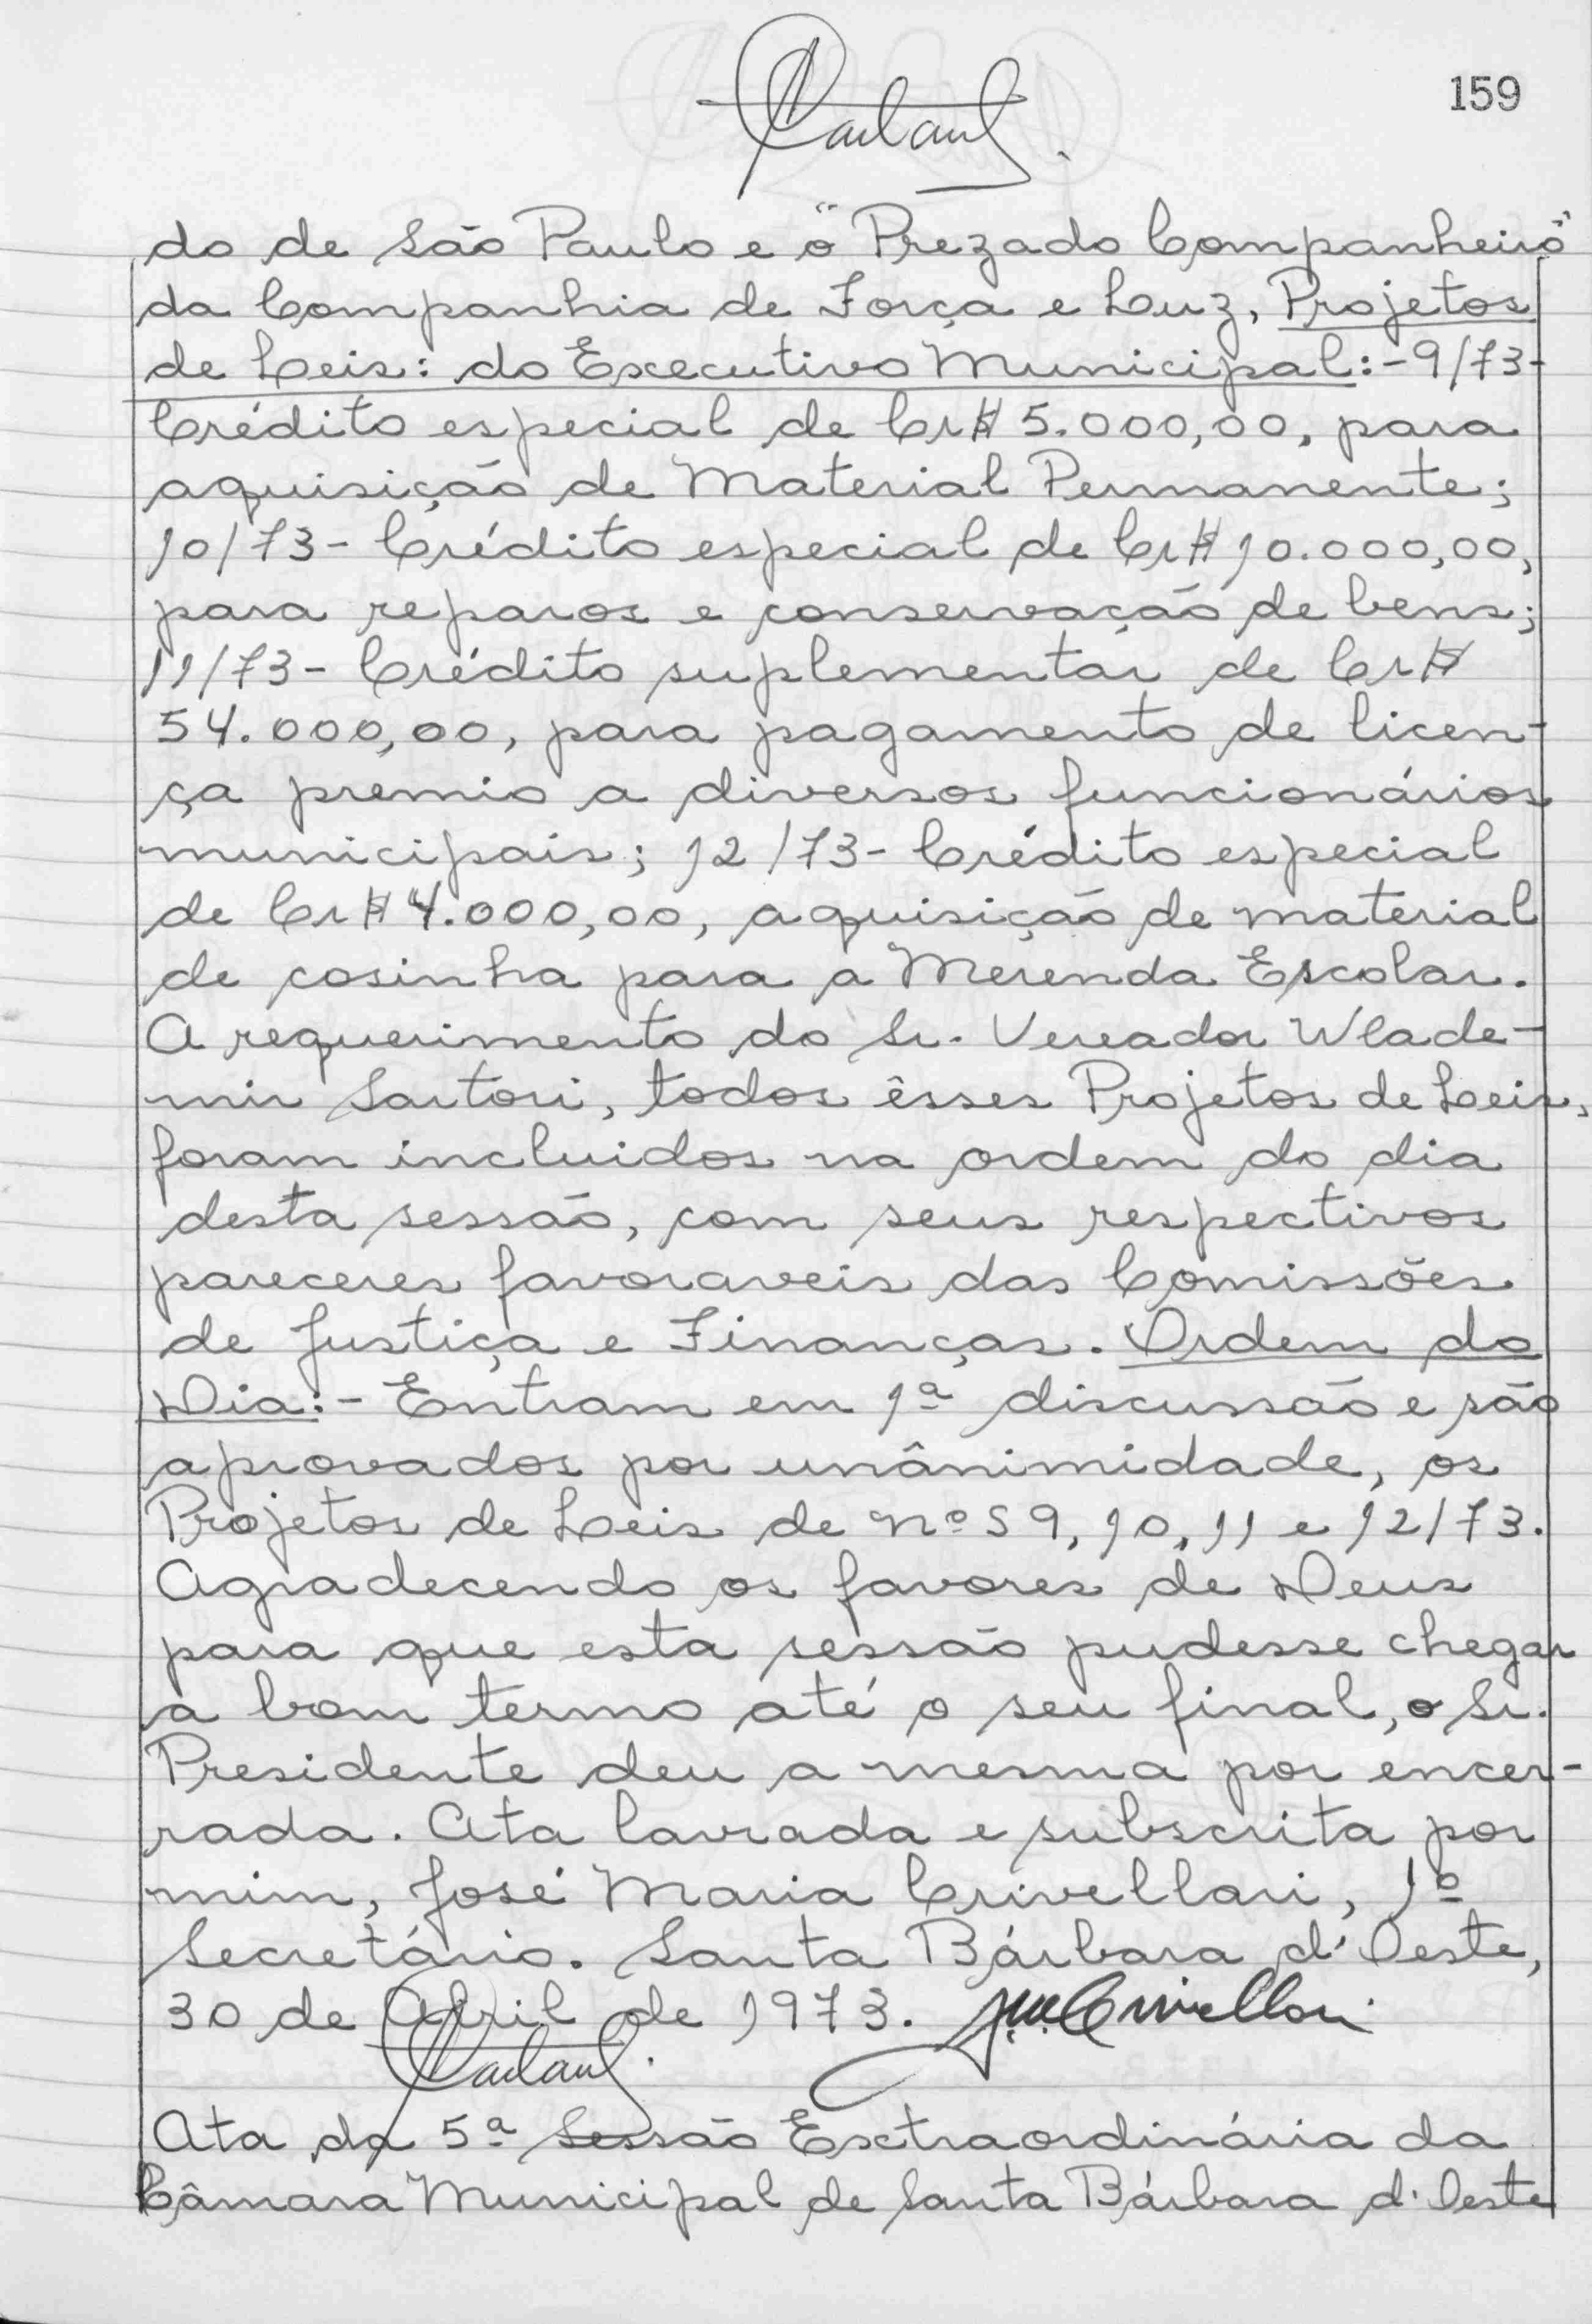 159
do de São Paulo e o "Prezado Companheiro"
da Companhia de Força e Luz, Projetos
de Leis: do Executivo Municipal:-9/73-
Crédito especial de Cr$ 5.000,00, para
aquisição de Material Permanente;
10/73- Crédito especial de Cr$ 10.000,00,
para reparos e conservação de bens;
11/73- Crédito suplementar de Cr$
54.000,00, para pagamento de licen-
ça premio a diversos funcionários
municipais; 12/73- Crédito especial
de Cr$ 4.000,00, aquisição de material
de cosinha para a Merenda Escolar.
A requerimento do Sr. Vereador Wlade-
mir Sartori, todos êsses Projetos de Leis,
foram incluidos na ordem do dia
desta sessão, com seus respectivos
pareceres favoraveis das Comissões
de Justiça e Finanças. Ordem do
Dia:- Entram em 1ª discussão e são
aprovados por unânimidade, os
Projetos de Leis de nºs 9, 10, 11 e 12/73.
Agradecendo os favores de Deus
para que esta sessão pudesse chegar
a bom termo até o seu final, o Sr.
Presidente deu a mesma por encer-
rada. Ata lavrada e subscrita por
mim, José Maria Crivellari, 1º
Secretário. Santa Bárbara d'Oeste,
30 de Abril de 1973. J.M. Crivellari
Ata da 5ª Sessão Extraordinária da
Câmara Municipal de Santa Bárbara d'Oeste